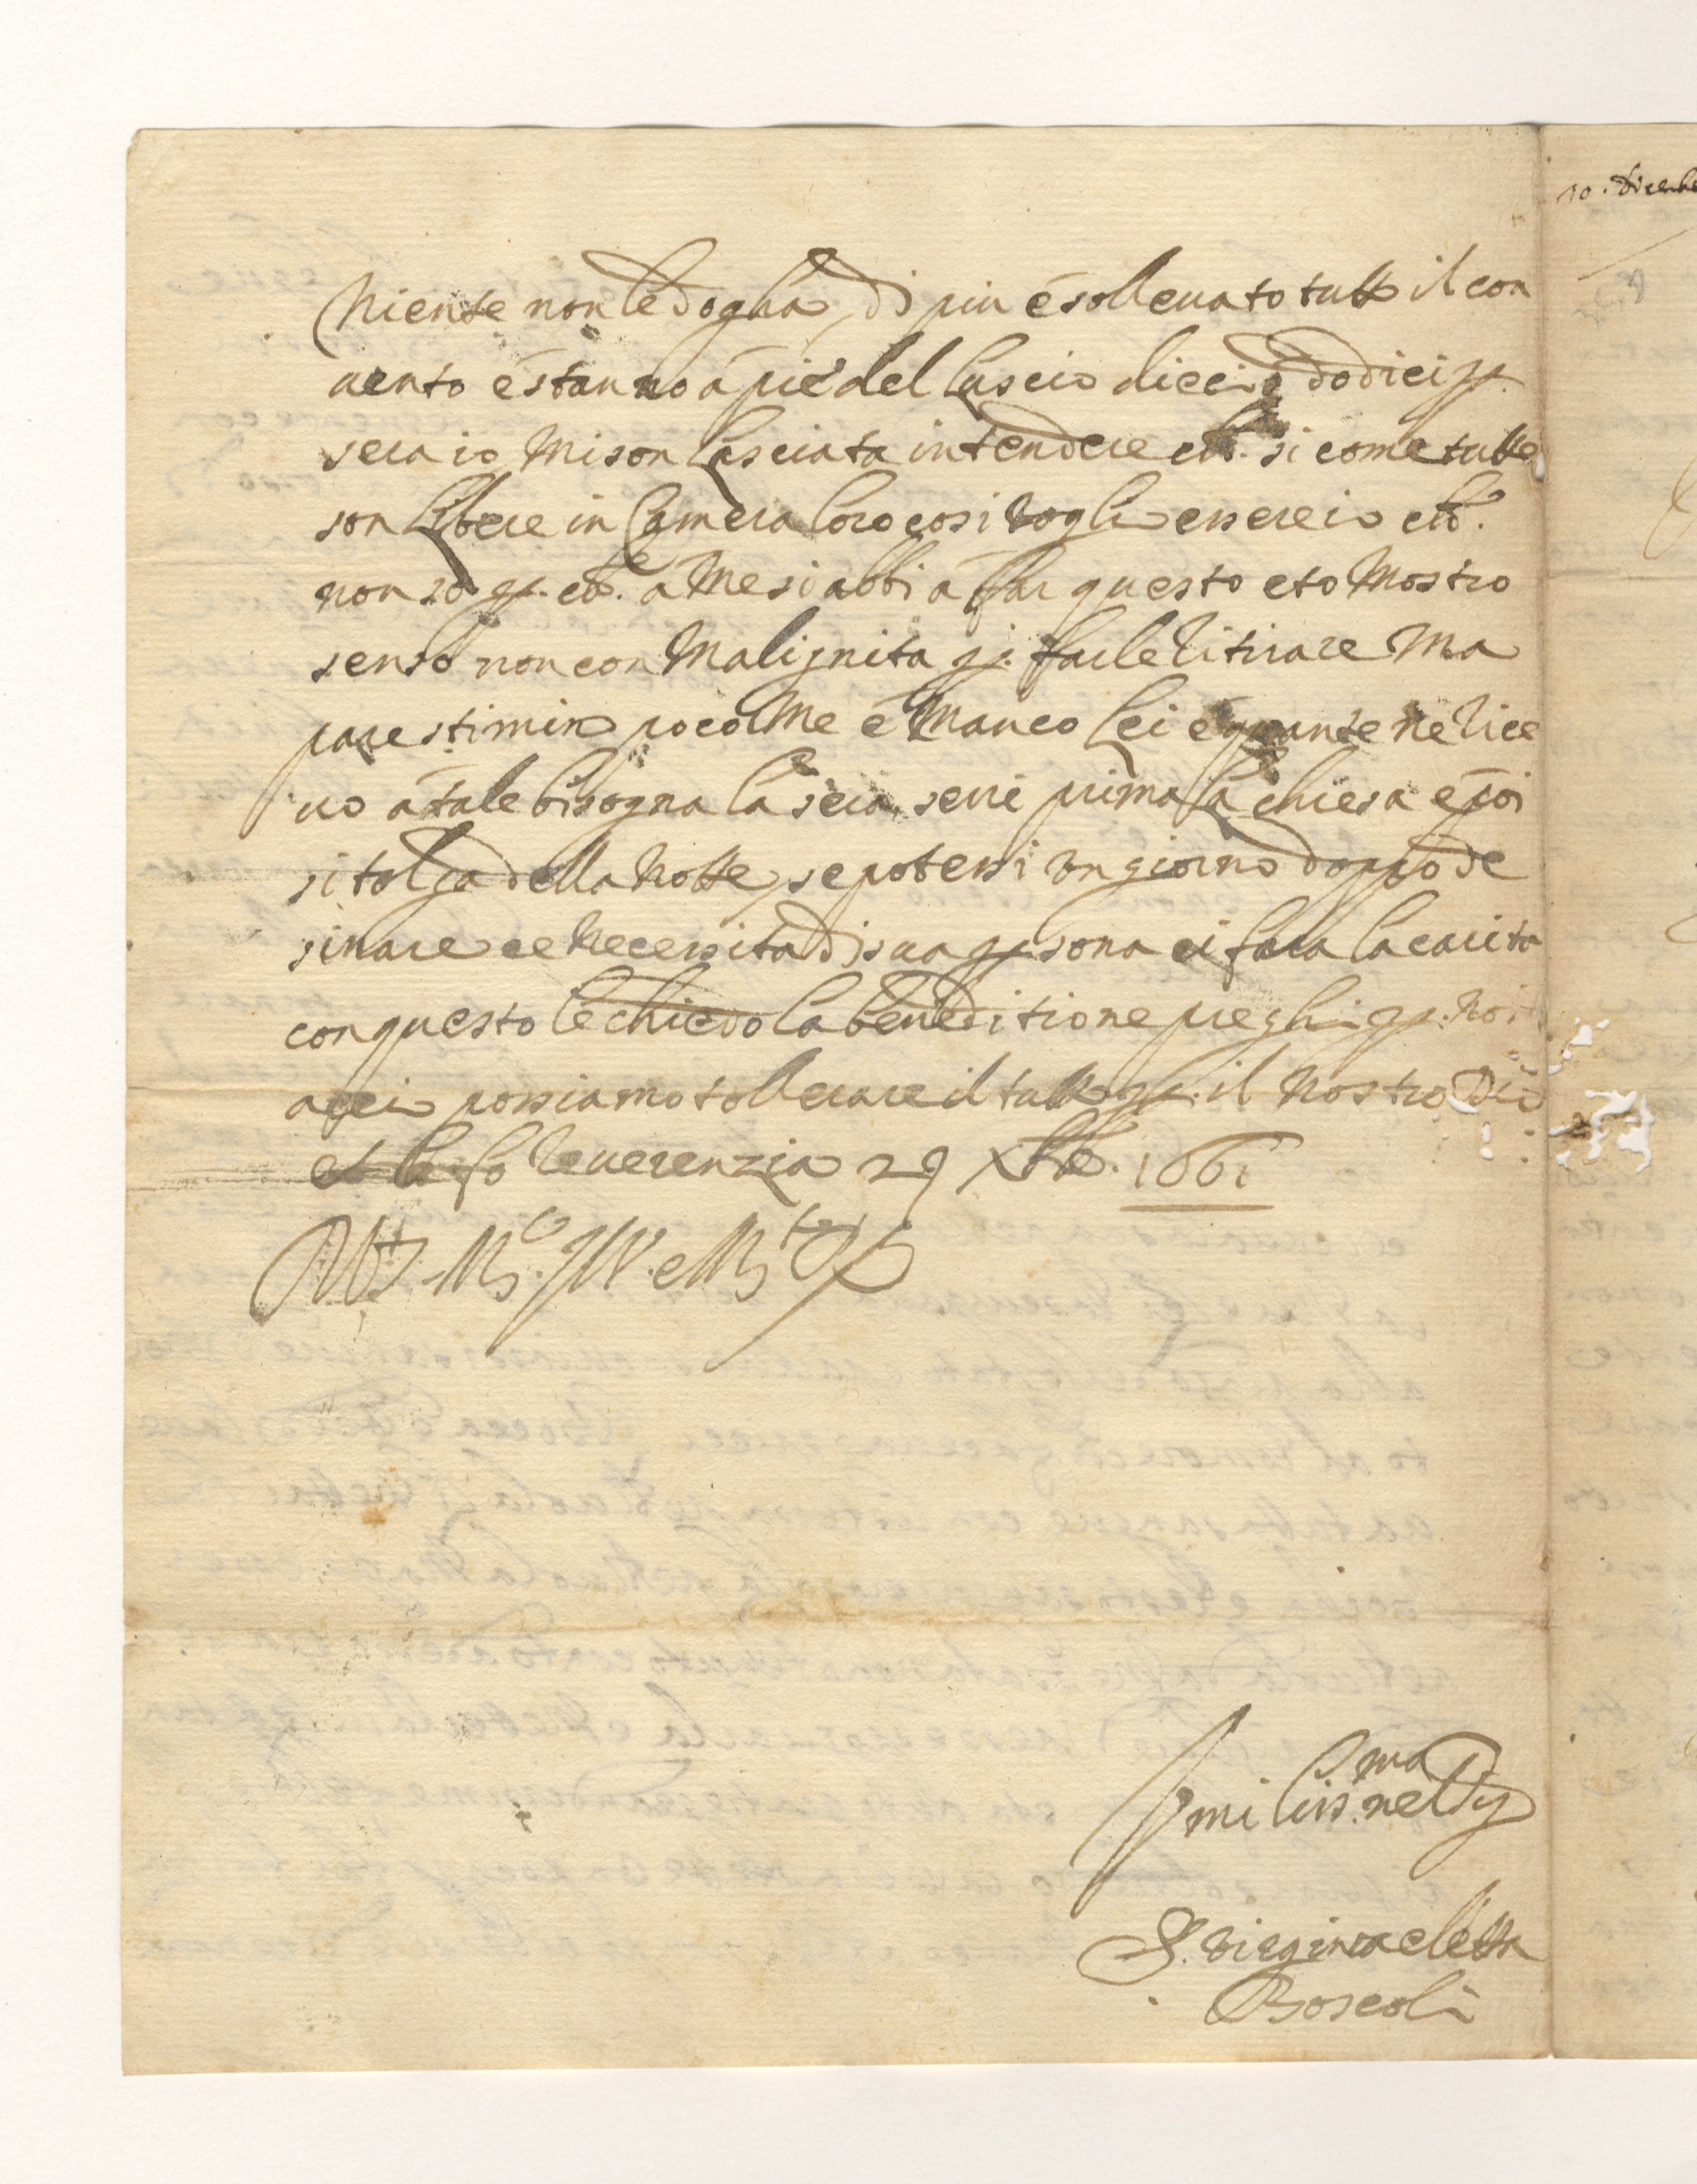 10. Dicembr
Niente non le dogha, di piu é sollevato tutto il con
uento é stanno á pié del luscio dieci o dodici p.
sera io mi son lasciata intendere ch. si come tutte
son libere in Camera loro cosi voglio essere io ch.
non so p. ch. á Me si abbi á far questo et o Mostro
senso non con Malignita p. farle Ritirare Ma
pare stimino poco Me é Manco Lei é quante ne Rice
uo á tale bisogna la sera seri prima la chiesa é poi
si tolga della Notte, se potessi un giorno doppo de
sinare ce Necessita di sua p.sona ci fara la carita
con questo le chiedo la beneditione preghi p. Noi
accio possiamo tollerare il tutto p. il Nostro Dio
et le fo Reverenzia 29 Xbb. 1661
S. Virginia eletta
Boscoli